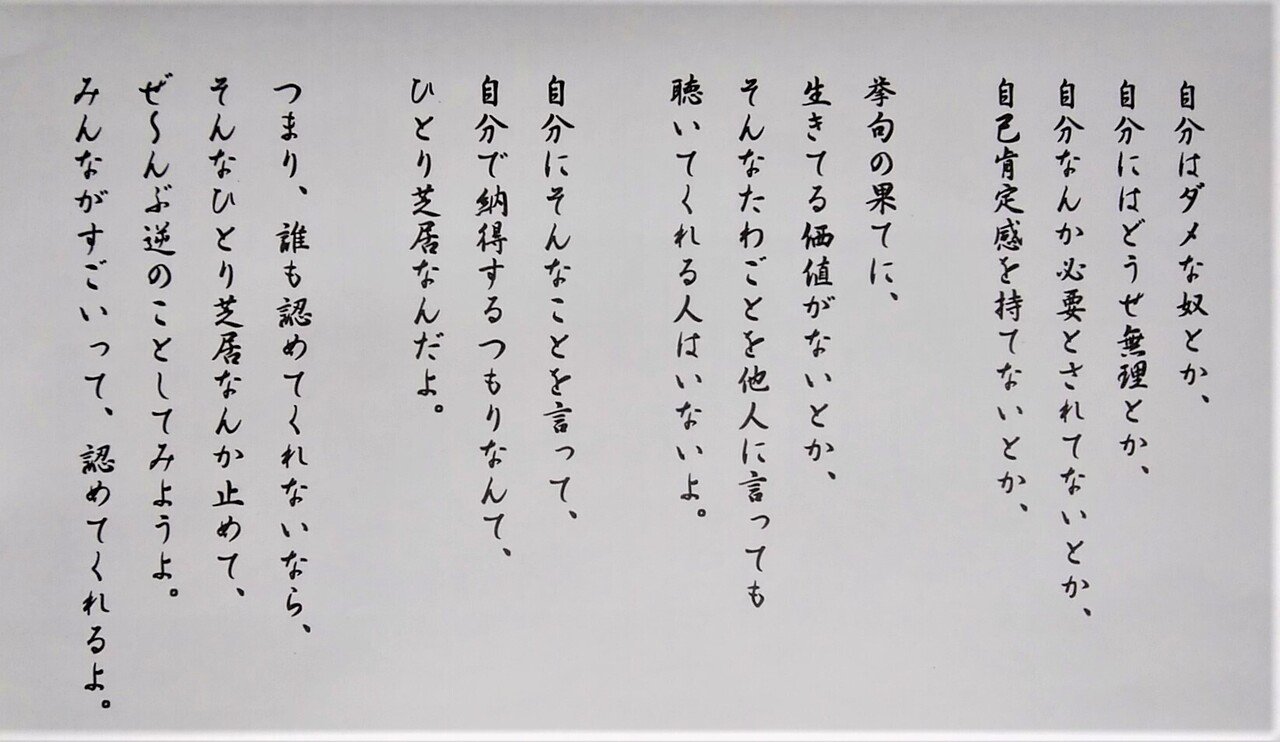 自分はダメな奴とか、
自分にはどうせ無理とか、
自分なんか必要とされてないとか、
自己肯定感を持てないとか、
挙句の果てに、
生きてる価値がないとか、
そんなたわごとを他人に言っても
聴いてくれる人はいないよ。
自分にそんなことを言って、
自分で納得するつもりなんて、
ひとり芝居なんだよ。
つまり、誰も認めてくれないなら、
そんなひとり芝居なんか止めて、
ぜ～んぶ逆のことしてみようよ。
みんながすごいって、認めてくれるよ。